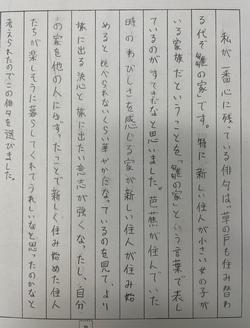 私が一番心に残っている俳句は、「草の戸も住み替わ
る代ぞ雛の家」です。特に新しい住人が小さい女の子が
いる家族だということを「雛の家」という言葉で表し
ているのがすてきだなと思いました。芭蕉が住んでいた
時のわびしさを感じる家が新しい住人が住み始
めると比べられないくらい華やかだなっているのを見て、より
旅に出る決心と旅に出たい意志が強くなったし、自分
の家を他の人にゆずったことで新しく住み始めた住人
たちが楽しそうに暮らしてくれてうれしいなと思ったのかなと
考えられたのでこの俳句を選びました。